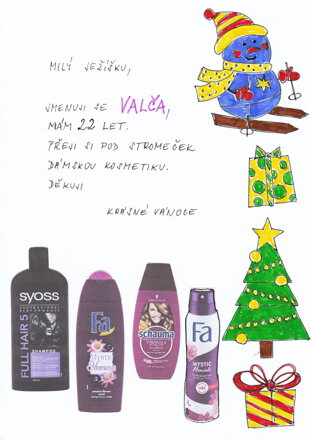 MILÝ JEŽÍŠKU,
JMENUJI SE VALČA,
MÁM 22 LET.
PŘEJI SI POD STROMEČEK
DÁMSKOU KOSMETIKU.
DĚKUJI
KRÁSNÉ VÁNOCE
syoss
PROFESSIONAL
PERFORMANCE
FULL HAIR 5
SHAMPOO
Fa
MYSTIC
Moments
Schwarzkopf
schauma
Fa
MYSTIC
Moments